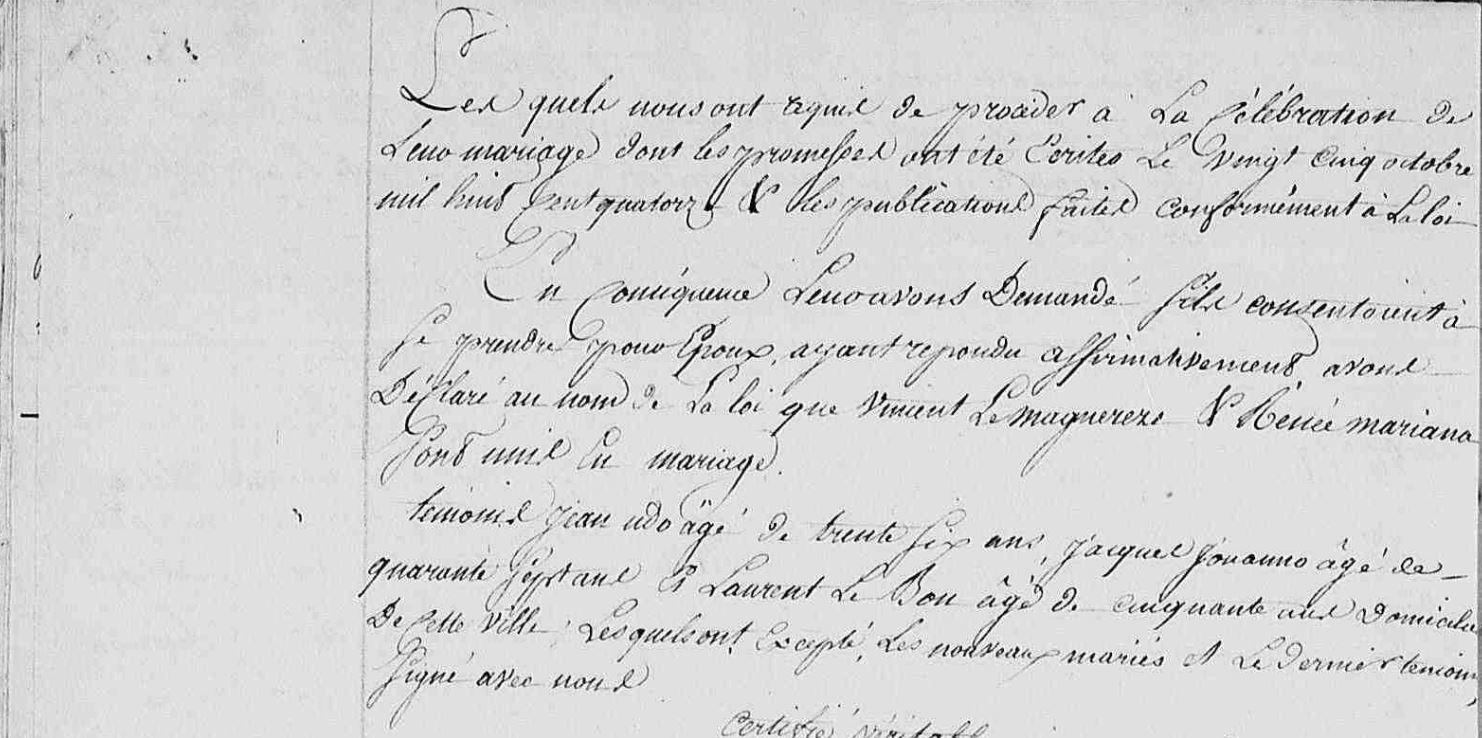 Les quels nous ont requis de procéder à La Célébration de
Leur mariage dont les promesses ont été Ecrites Le vingt cinq octobre
mil huit Cent quatorz & les publications faites conformément à La loi
En conséquence Leur avons Demandé S'ils consentoient à
Se prendre pour Epoux, ayant repondu affirmativement avons
Déclaré au nom de La loi que vincent Le maguereze & Rénée mariana
Sont unis En mariage.
temoins jean udo âgé de trente Six ans, jacques jouanno âgé de
quarante Sept ans Et Laurent Le Bon âgé de cinquante ans Domiciliés
De Cette ville; Lesquels ont, Excepté, Les nouveaux mariés et Le dernier temoin,
Signé avec nous
Certifié véritabl